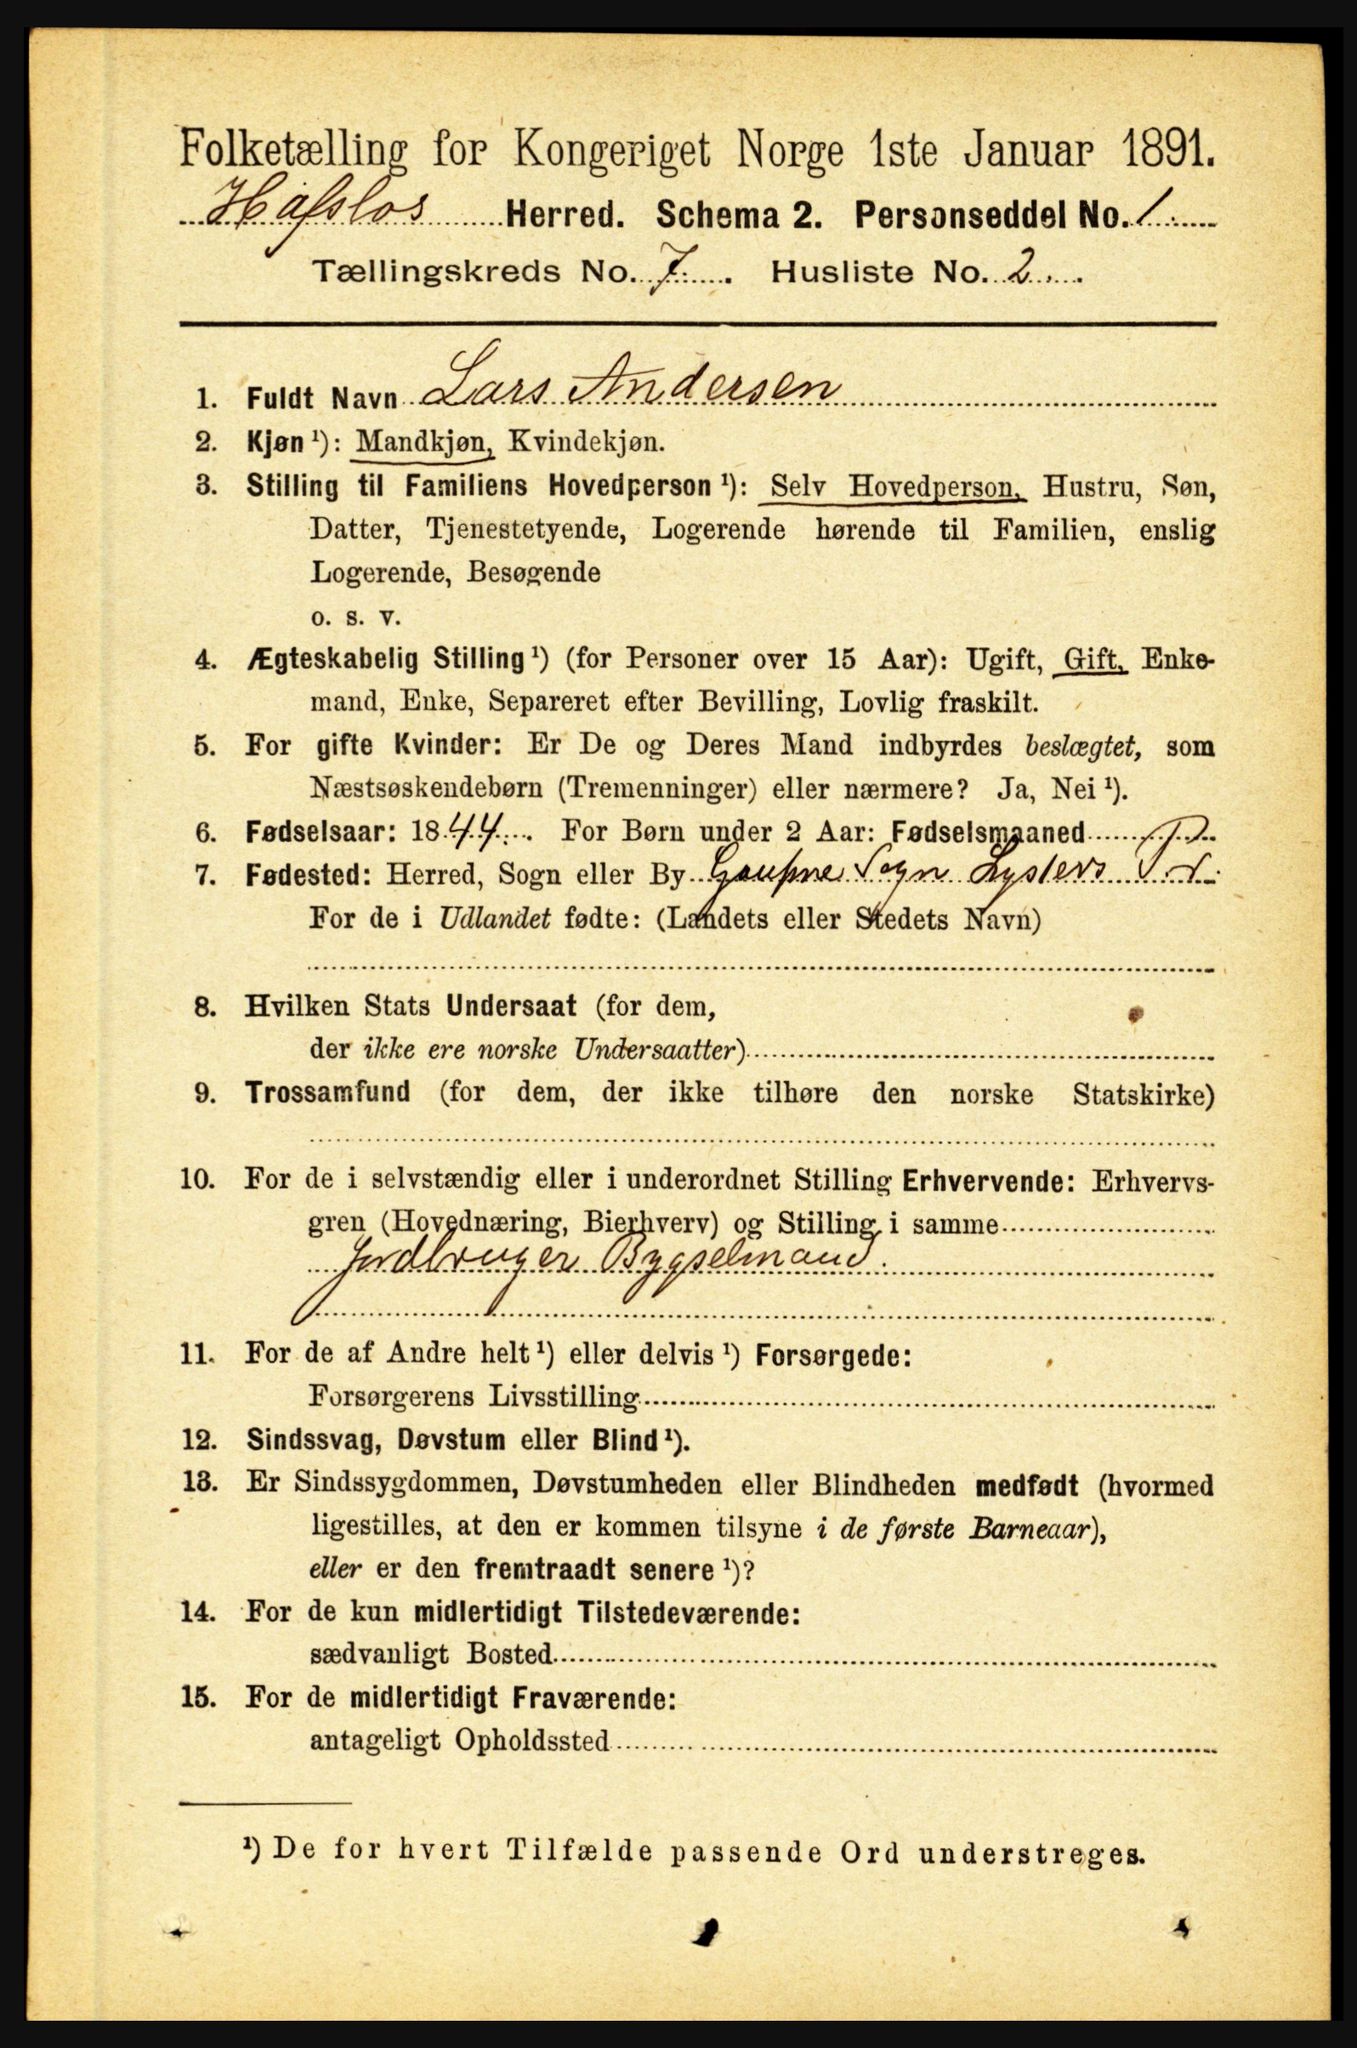 Folketælling for Kongeriget Norge 1ste Januar 1891.
Hafslos Herred. Schema 2. Personseddel No. 1.
Tællingskreds No. 7. Husliste No. 2.
1. Fuldt Navn Lars Andersen
2. Kjøn ¹): Mandkjøn, Kvindekjøn.
3. Stilling til Familiens Hovedperson ¹): Selv Hovedperson, Hustru, Søn,
Datter, Tjenestetyende, Logerende hørende til Familien, enslig
Logerende, Besøgende
o. s. v.
4. Ægteskabelig Stilling ¹) (for Personer over 15 Aar): Ugift, Gift, Enke-
mand, Enke, Separeret efter Bevilling, Lovlig fraskilt.
5. For gifte Kvinder: Er De og Deres Mand indbyrdes beslægtet, som
Næstsøskendebørn (Tremenninger) eller nærmere? Ja, Nei ¹).
6. Fødselsaar: 1844. For Børn under 2 Aar: Fødselsmaaned
7. Fødested: Herred, Sogn eller By Gaupne Sogn Lysters
For de i Udlandet fødte: (Landets eller Stedets Navn)
8. Hvilken Stats Undersaat (for dem,
der ikke ere norske Undersaatter)
9. Trossamfund (for dem, der ikke tilhøre den norske Statskirke)
10. For de i selvstændig eller i underordnet Stilling Erhvervende: Erhvervs-
gren (Hovednæring, Bierhverv) og Stilling i samme
Jordbruger Bygselmand.
11. For de af Andre helt ¹) eller delvis ¹) Forsørgede:
Forsørgerens Livsstilling
12. Sindssvag, Døvstum eller Blind ¹).
13. Er Sindssygdommen, Døvstumheden eller Blindheden medfødt (hvormed
ligestilles, at den er kommen tilsyne i de første Barneaar),
eller er den fremtraadt senere ¹)?
14. For de kun midlertidigt Tilstedeværende:
sædvanligt Bosted
15. For de midlertidigt Fraværende:
antageligt Opholdssted
¹) De for hvert Tilfælde passende Ord understreges.